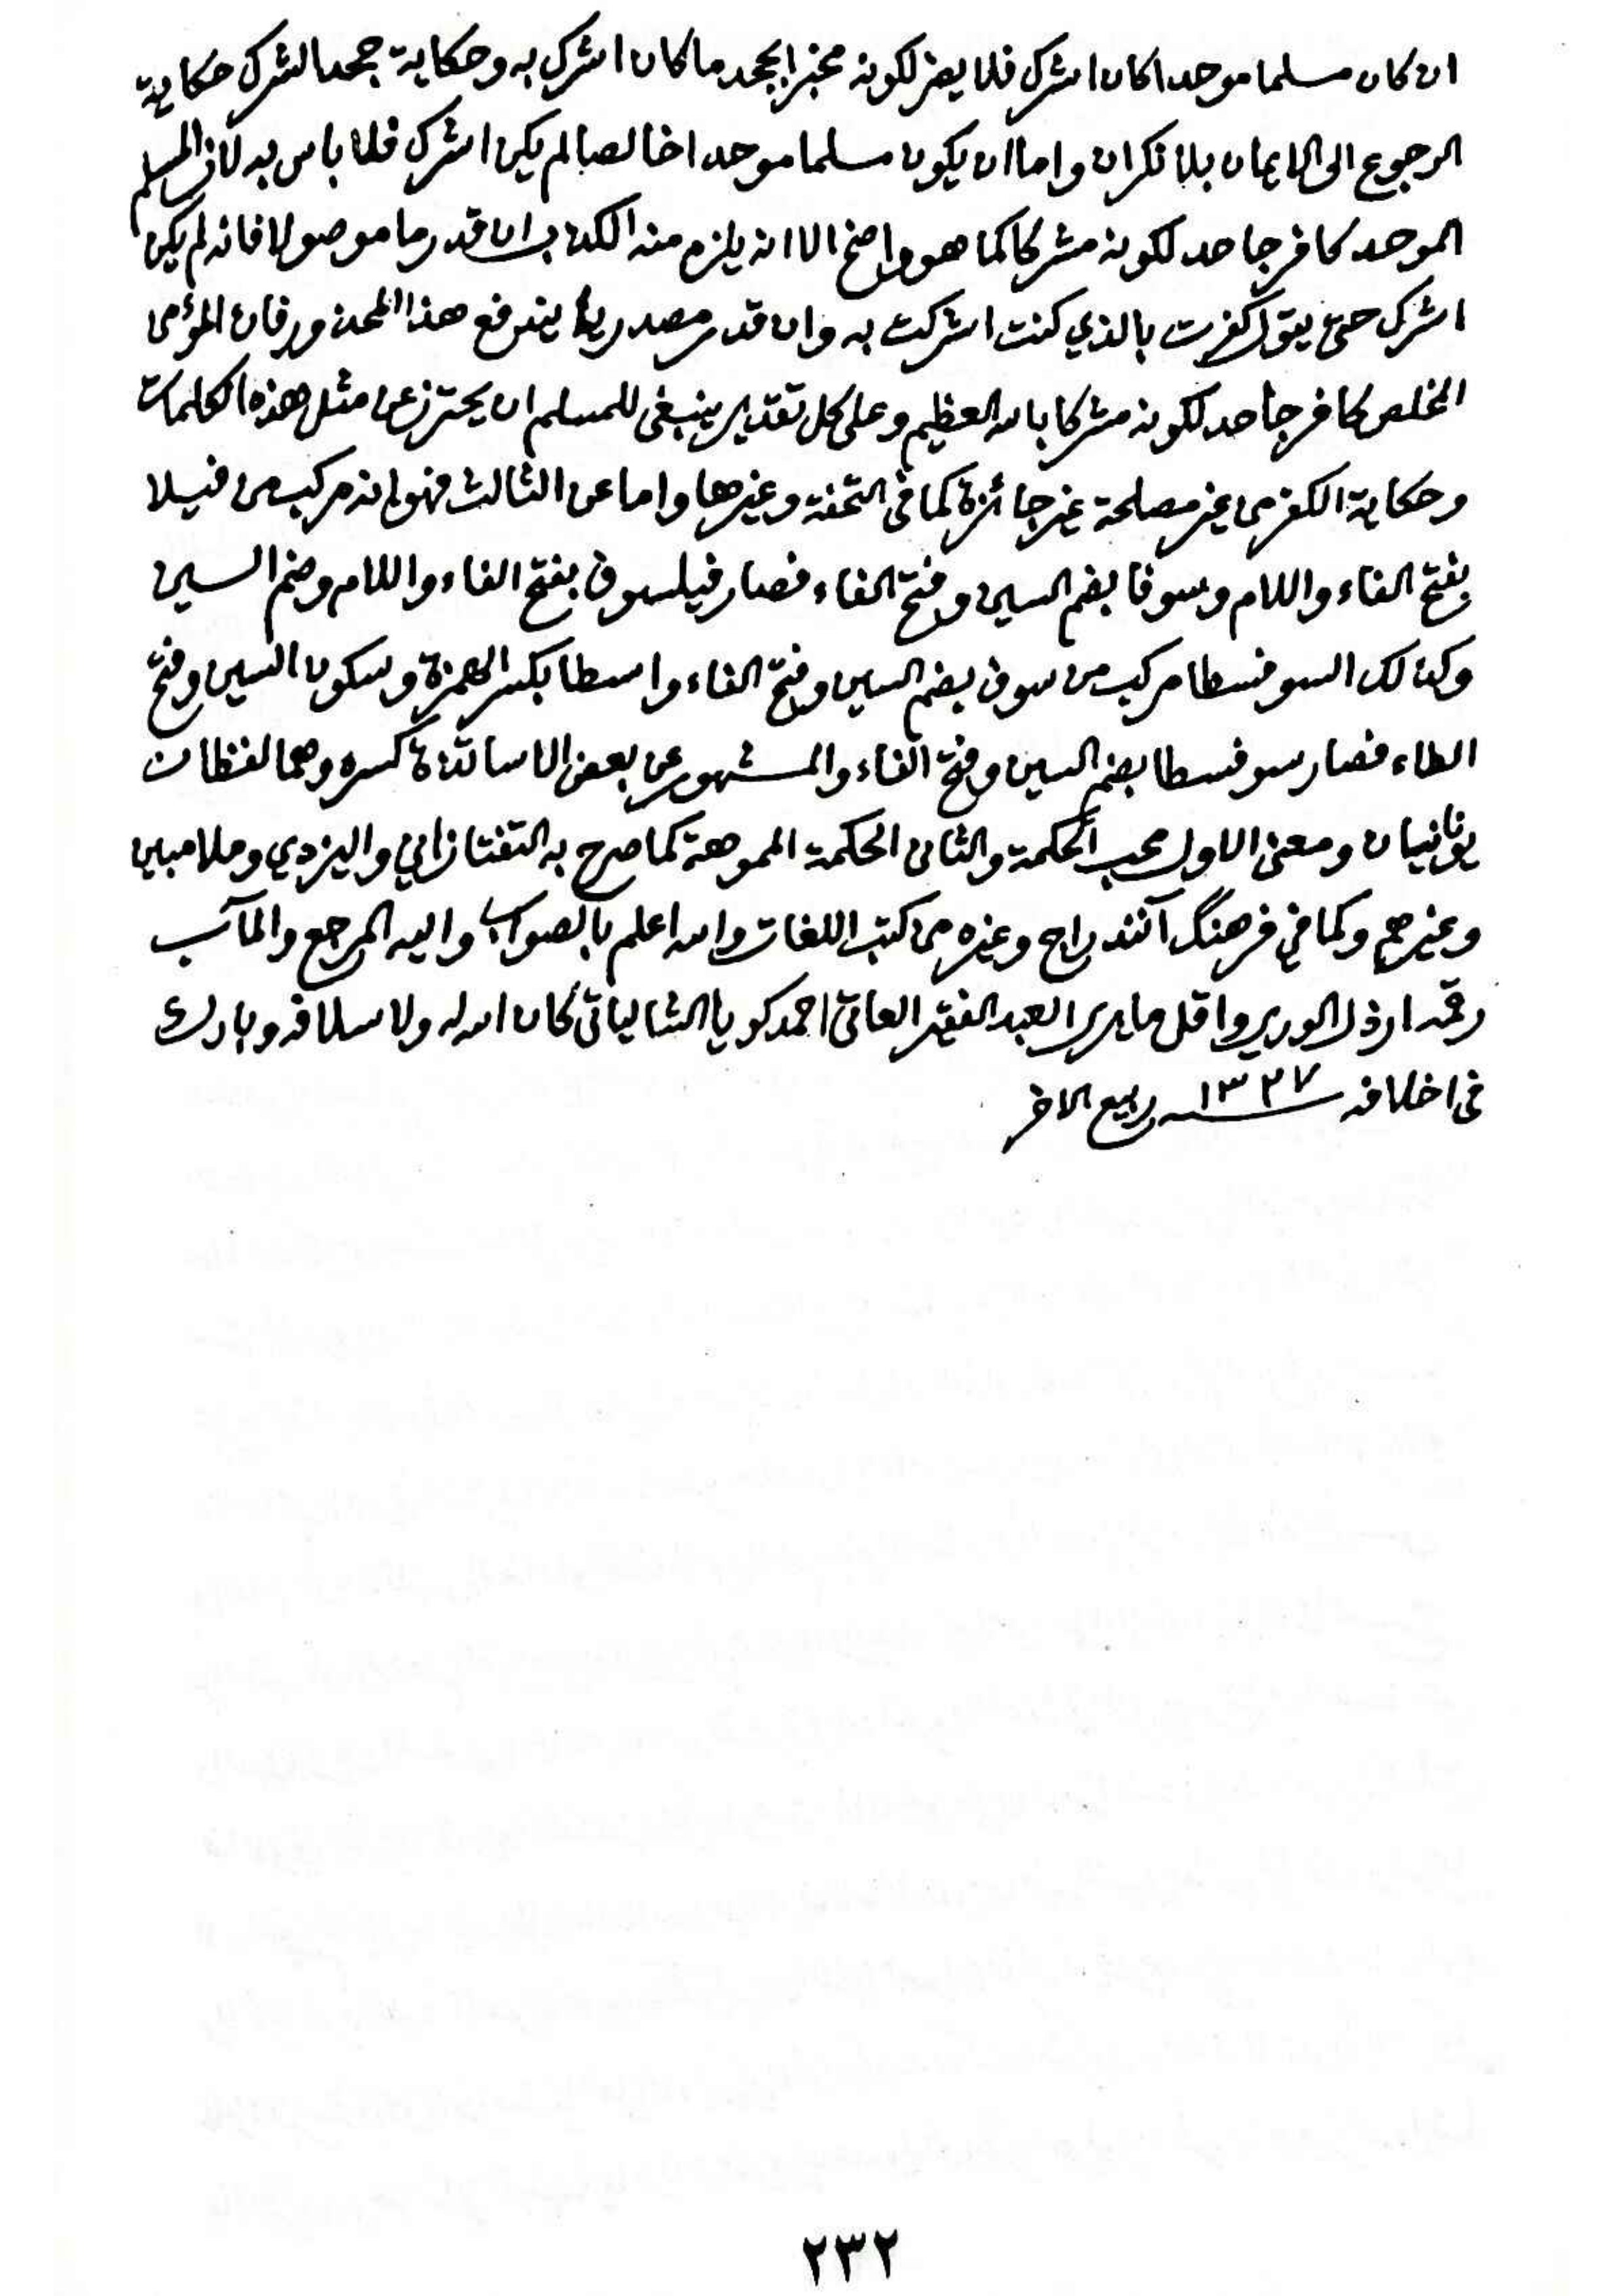 ان كان مسلما موحدا كان اشرك فلا يضر لكونه مخبرا بجحد ما كان اشرك به وحكاية جحد الشرك حكاية
الرجوع الى الايمان بلا نكران واما ان يكون مسلما موحدا خالصا لم يكن اشرك فلا باس به لان المسلم
الموحد كافر جاحد لكونه مشركا كما هو واضح الا انه يلزم منه الكذب ان قدر ما موصولا فانه لم يكن
اشرك حتى يقول كفرت بالذي كنت اشركت به وان قدر مصدرية يندفع هذا المحذور فان المؤمن
المخلص كافر جاحد لكونه مشركا بالله العظيم وعلى كل تقدير ينبغى للمسلم ان يحترز عن مثل هذه الكلمات
وحكاية الكفر من غير مصلحة غير جائزة كما فى التحفة وغيرها واما عن الثالث فهو انه مركب من فيلا
بفتح الفاء واللام وسوفا بضم السين وفتح الفاء فصار فيلسوف بفتح الفاء واللام وضم السين
وكذلك السوفسطا مركب من سوف بضم السين وفتح الفاء واسطا بكسر الهمزة وسكون السين وفتح
الطاء فصار سوفسطا بضم السين وفتح الفاء والمشهور عن بعض الاساتذة كسره وهما لفظان
يونانيان ومعنى الاول محب الحكمة والثانى الحكمة المموهة كما صرح به التفتازاني واليزدي وملا مبين
وغيرهم وكما في فرهنگ آنند راج وغيره من كتب اللغات والله اعلم بالصواب واليه المرجع والمآب
رقمه ارذل الورى واقل ما يرى العبد الفقير العاتى احمد كويا الشالياتى كان الله له ولاسلافه وبارك
فى اخلافه ١٣٣٧ ربيع الاخر
٢٣٢